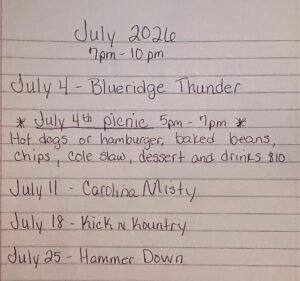 July 2026
7pm - 10 pm
July 4 - Blueridge Thunder
* July 4th picnic 5pm - 7pm *
Hot dogs or hamburger, baked beans,
chips, cole slaw, dessert and drinks $10
July 11 - Carolina Misty
July 18 - Kick N Kountry
July 25 - Hammer Down